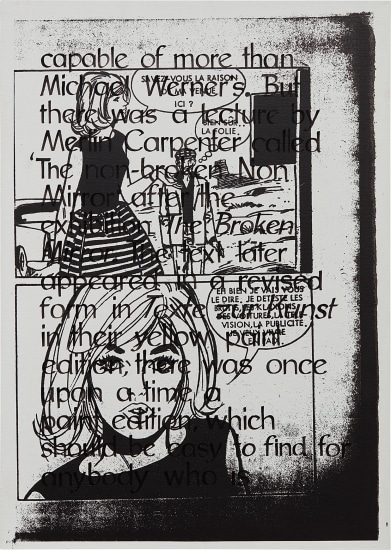 capable of more than
Michael Werners. But
there was a lecture by
Merlin Carpenter called
'The non-broken Non
Mirror' after the
exhibition The Broken
Mirror. The text later
appeared in a revised
form in Texte zur Kunst
in their yellow paint
edition, there was once
upon a time a
paint edition, which
should be easy to find for
anybody who is
SAVEZ-VOUS LA RAISON
MA VENUE
ICI ?
BIEN SÛR
LA FOLIE.
EH BIEN JE VAIS VOUS
LE DIRE. JE DETESTE LES
BRUITS, LES KLAXONS
DES VOITURES, LA TELE
VISION, LA PUBLICITE.
JE VEUX VIVRE